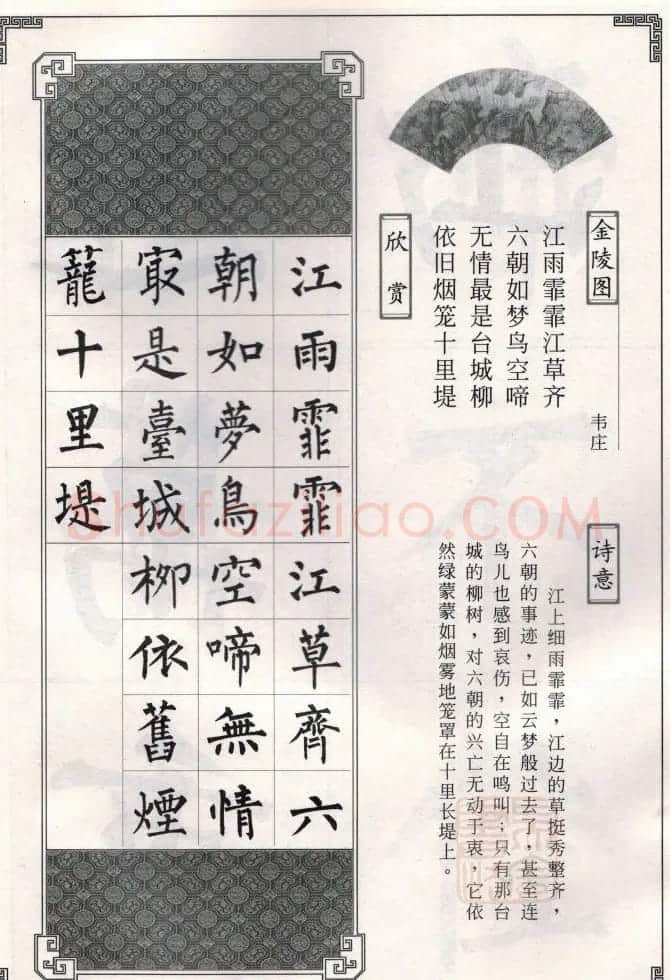 金陵图
韦庄
江雨霏霏江草齐
六朝如梦鸟空啼
无情最是台城柳
依旧烟笼十里堤
欣赏
诗意
江上细雨霏霏，江边的草挺秀整齐，
六朝的事迹，已如云梦般过去了，甚至连
鸟儿也感到哀伤，空自在鸣叫；只有那台
城的柳树，对六朝的兴亡无动于衷，它依
然绿蒙蒙如烟雾地笼罩在十里长堤上。
江雨霏霏江草齊六
朝如夢鳥空啼無情
冣是臺城柳依舊煙
籠十里堤
shufaziliao.COM